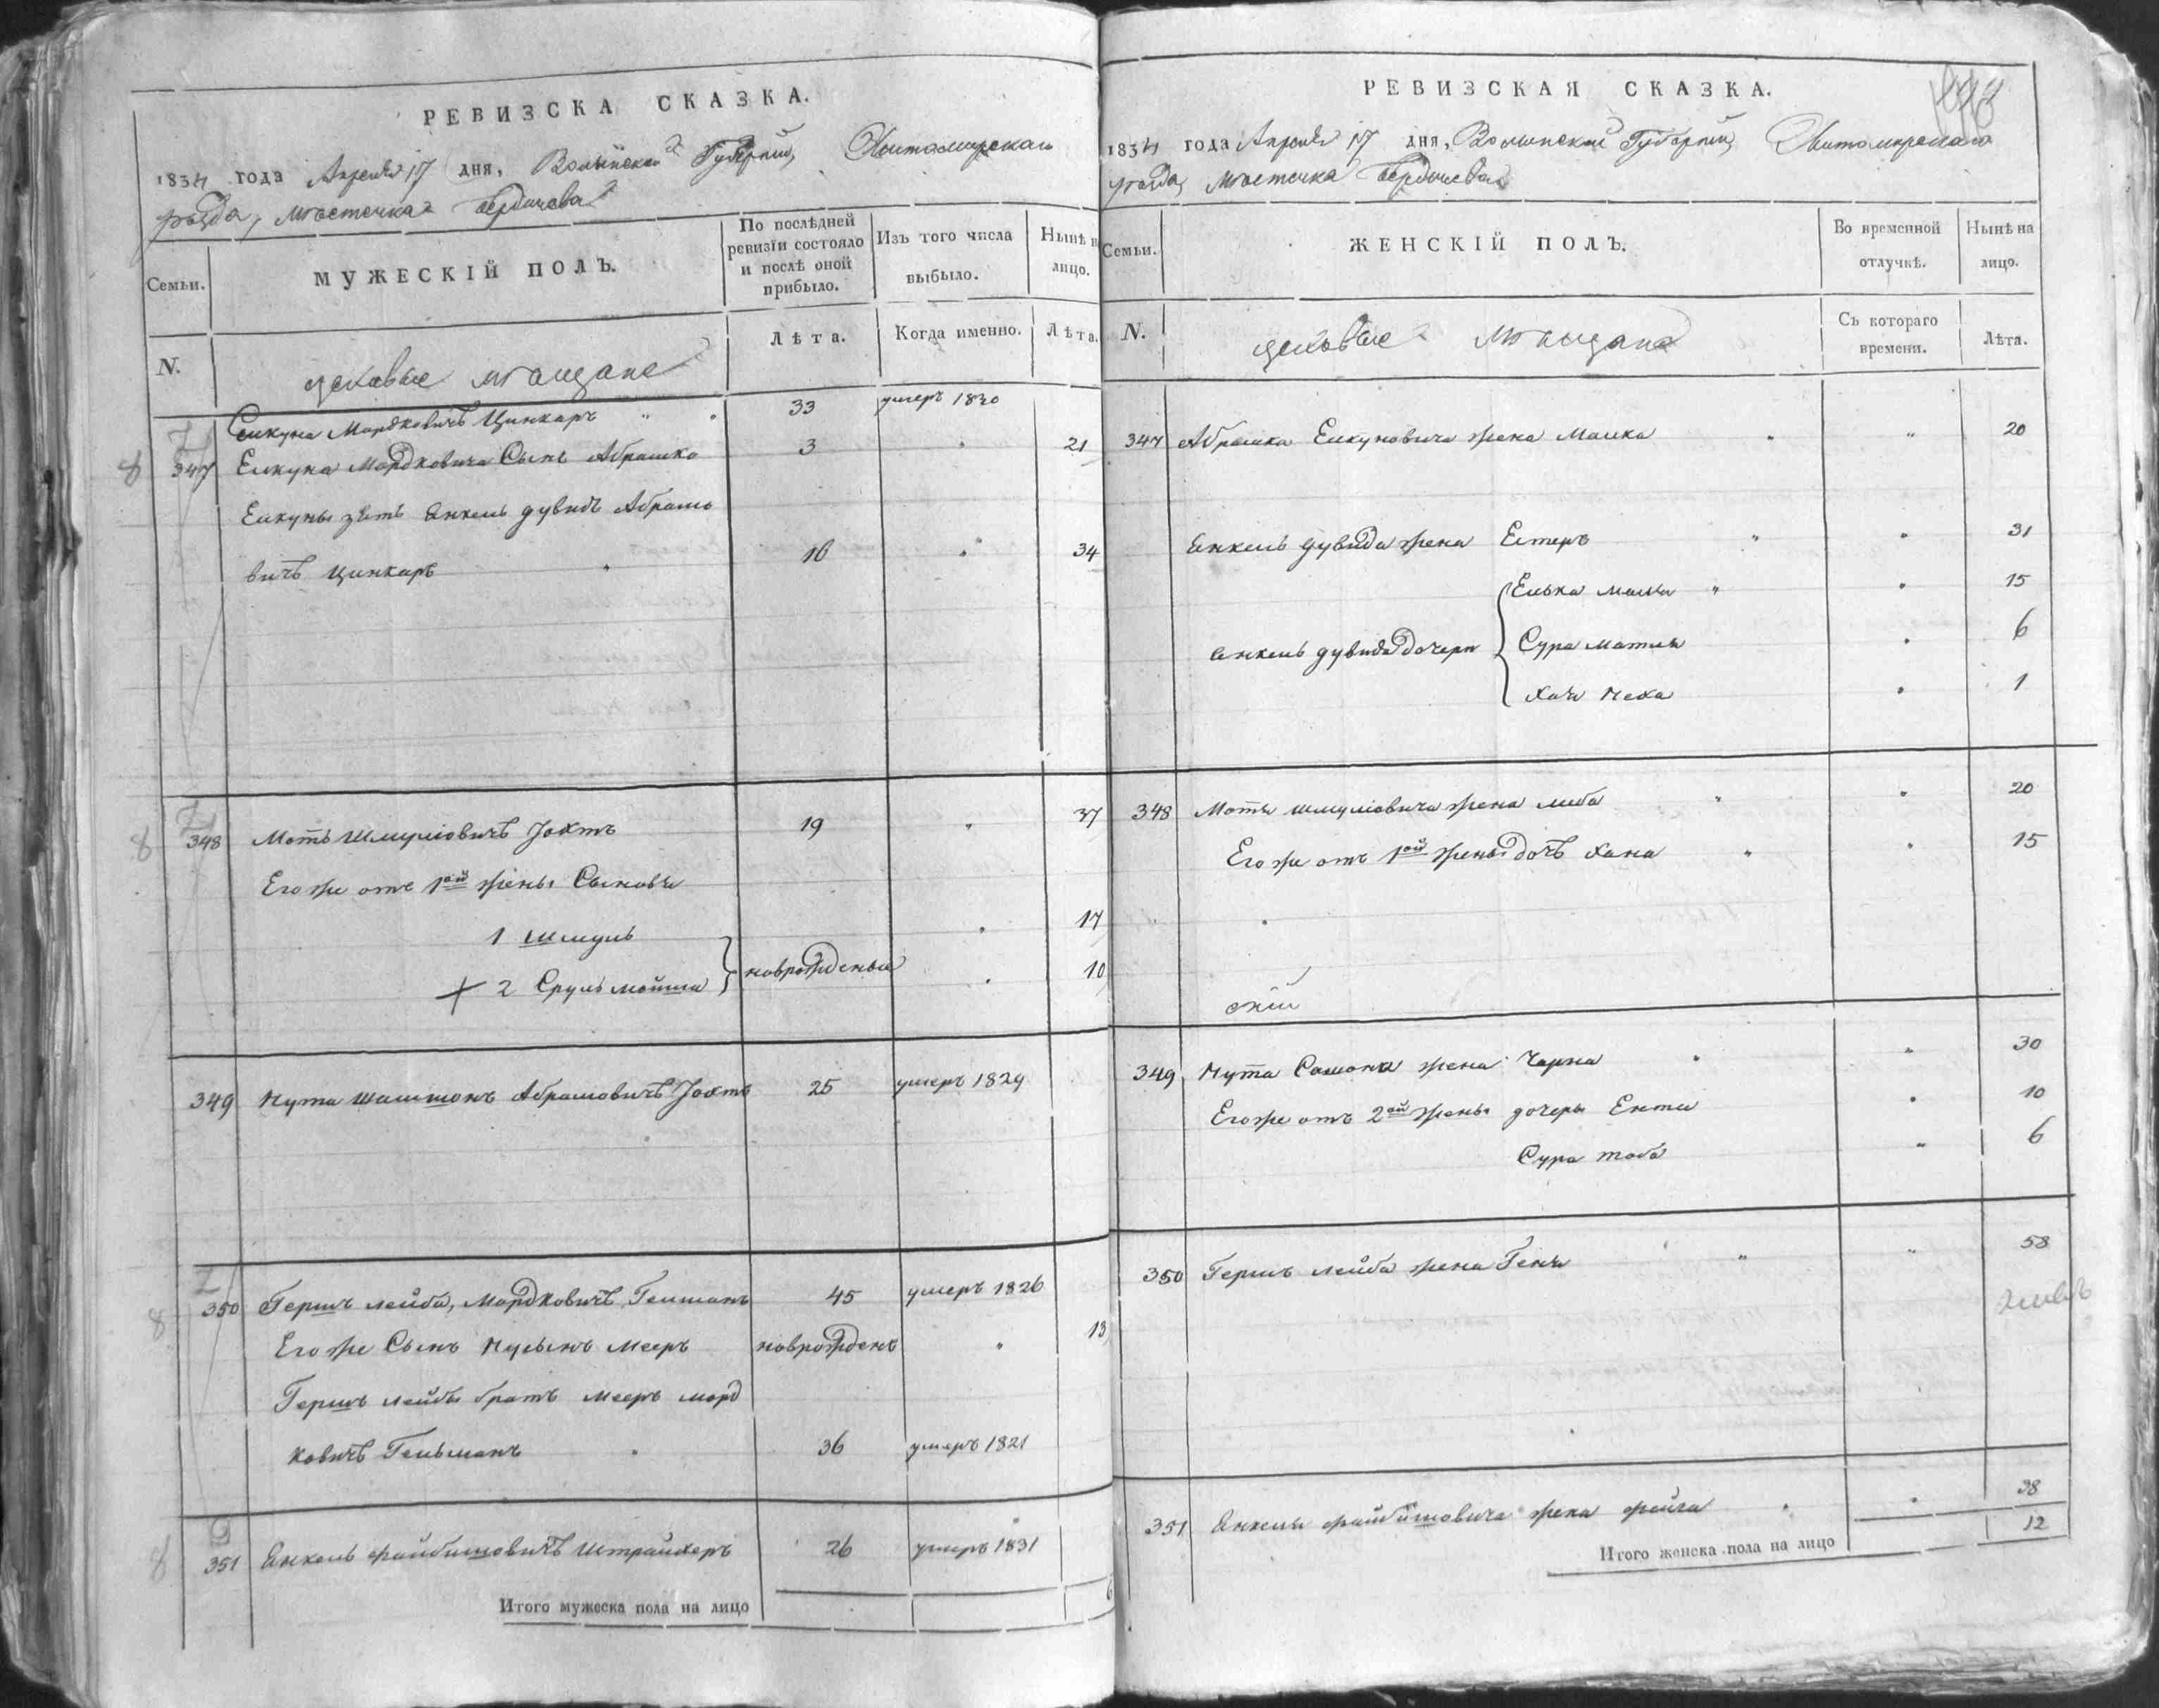 РЕВИЗСКА СКАЗКА.
1834 года Апреля 17 дня, Волынской Губернии, Житомирскаго
уезда, местечка Бердичева
Семьи.
МУЖЕСКІЙ ПОЛЪ.
По послѣдней ревизіи состояло и послѣ оной прибыло.
Изъ того числа выбыло.
Нынѣ на лицо.
N.
цеховые мещане
Лѣта.
Когда именно.
Лѣта.
Мордковичъ Цинкаръ 33 умеръ 1830
347 Мордковича Сынъ Абрашко 3 21
зять Янкель дувидъ Абрамо
вичъ Цинкаръ 16 34
348 Моть Шмулiовичъ Јохтъ 19 37
Его же отъ 1ой жены Сыновья
1 Шмуль 17
+ 2 Сруль мошка новрожденые 10
349 Нута Шамшонъ Абрамовичъ Јохтъ 25 умеръ 1829
350 Гершъ лейба, Мордковичъ, Гельманъ 45 умеръ 1826
Его же Сынъ Нусынъ Мееръ новрожденъ 13
Гершъ лейбы братъ Мееръ морд
ковичъ Гельманъ 36 умеръ 1821
351 Янкель файбишовичъ Штрайхеръ 26 умеръ 1831
Итого мужеска пола на лицо 6
РЕВИЗСКАЯ СКАЗКА.
1834 года Апреля 17 дня, Волынской Губерніи, Житомирскаго
уезда, местечка Бердичева
Семьи.
ЖЕНСКІЙ ПОЛЪ.
Во временной отлучкѣ.
Нынѣ на лицо.
N.
цеховые мещане
Съ котораго времени.
Лѣта.
347 Абрашка жена Малка 20
Янкель дувида жена Естеръ 31
Елька 15
Янкель дувида дочери Сура матля 6
Хая 1
348 Мотя шмулiовича жена 20
Его же отъ 1ой жены дочь Хана 15
349 Нута Самсона жена Чарна 30
Его же отъ 2ой жены дочеры Ента 10
Сура тоба 6
350 Гершъ лейба жена Геня 58
351 Янкеля файбишовича жена фейга 38
Итого женска пола на лицо 12